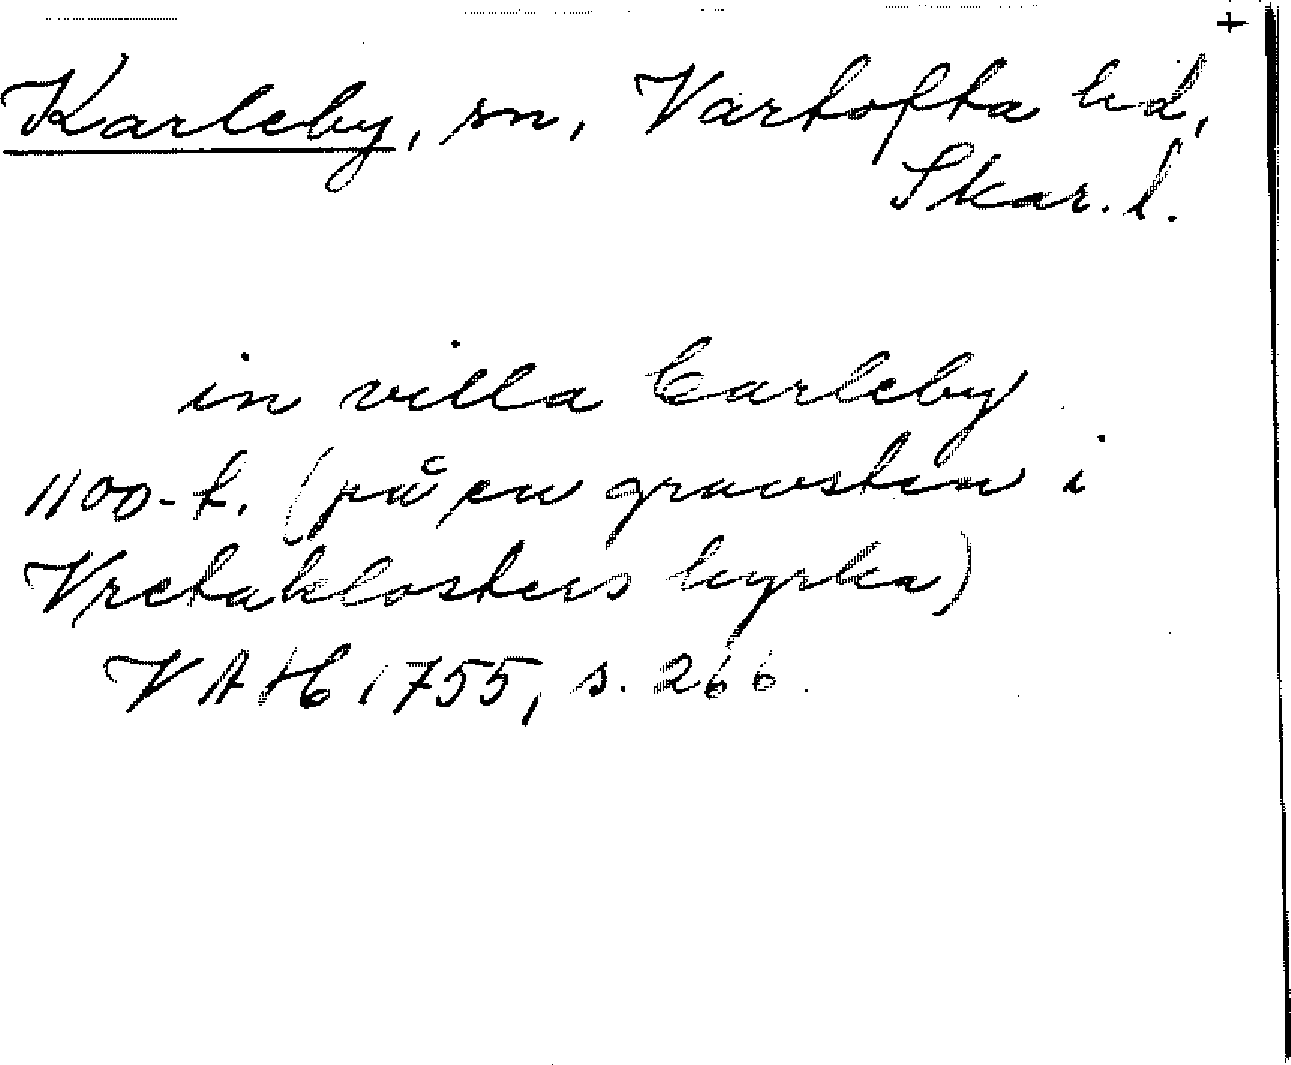 +
Karleby, sn, Vartofta hd,
Skar. l.
in villa Carleby
1100-t. (på en gravsten i
Vretaklosters kyrka)
VAH 1755, s. 266.